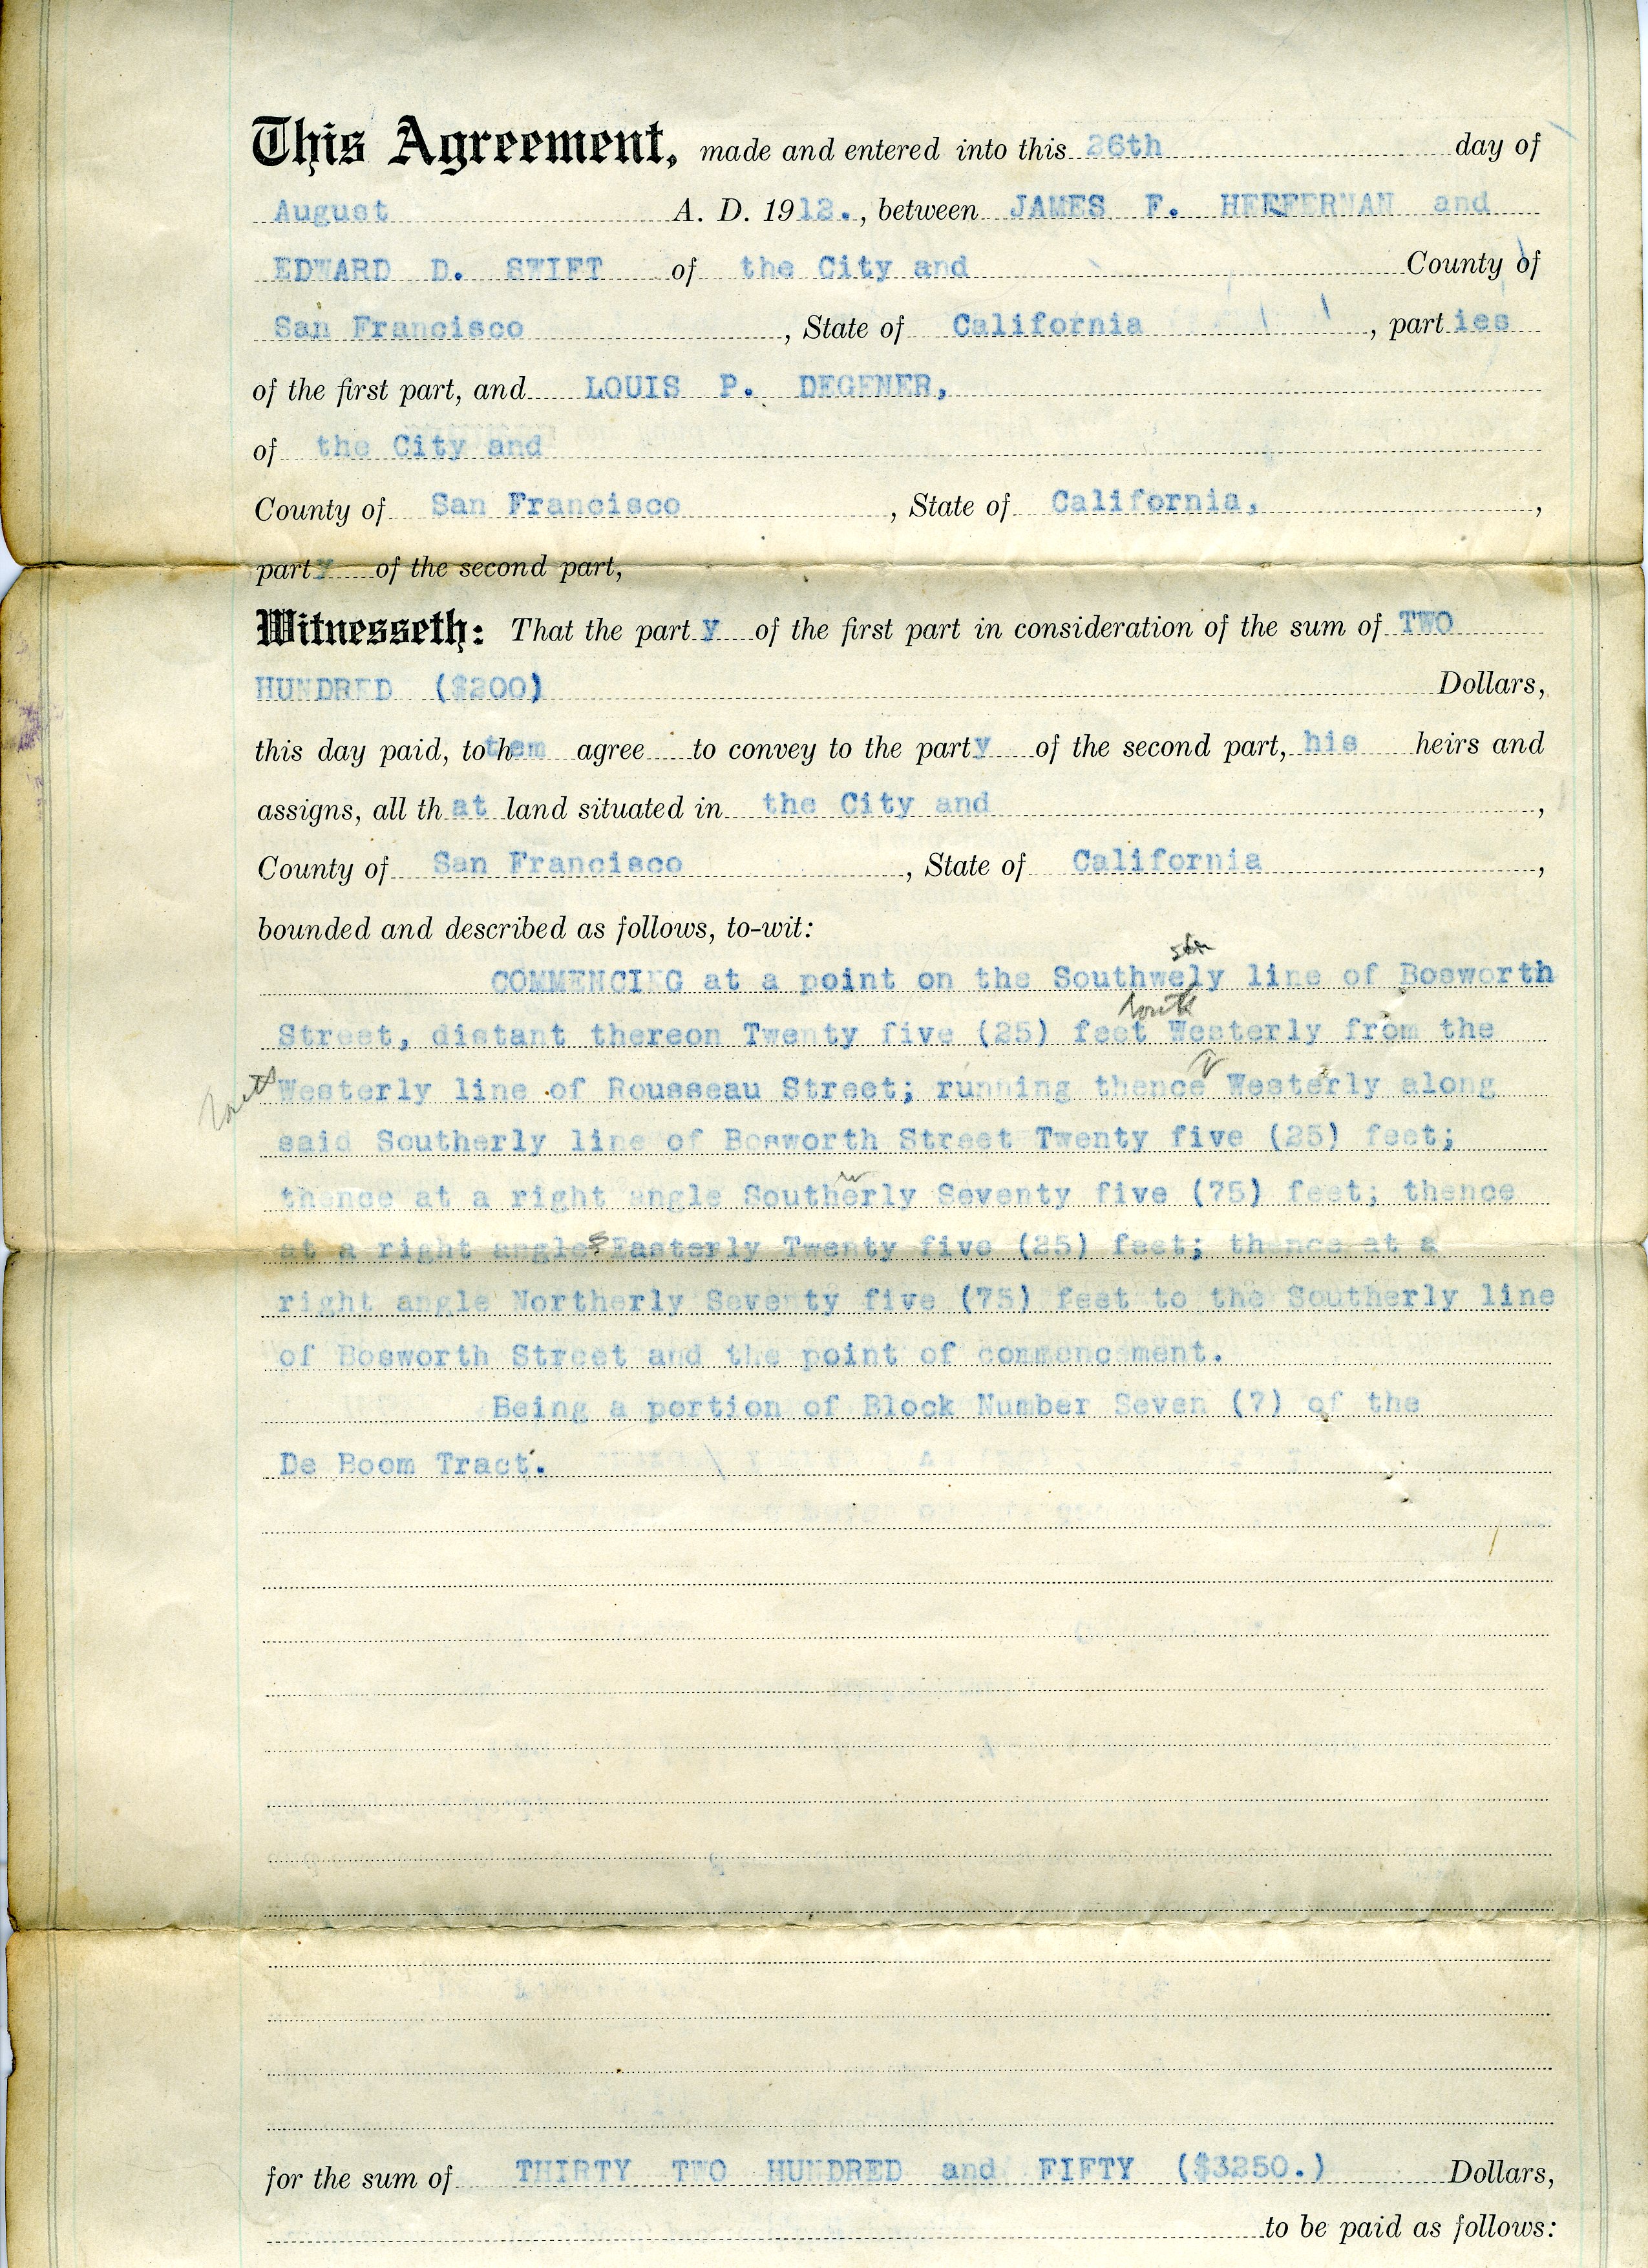 This Agreement, made and entered into this 26th day of
August A. D. 1912., between JAMES F. HEFFERNAN and
EDWARD D. SWIFT of the City and County of
San Francisco, State of California, parties
of the first part, and LOUIS P. DEGENER,
of the City and
County of San Francisco, State of California,,
party of the second part,
Witnesseth: That the party of the first part in consideration of the sum of TWO
HUNDRED ($200) Dollars,
this day paid, to them agree to convey to the party of the second part, his heirs and
assigns, all that land situated in the City and,
County of San Francisco, State of California,
bounded and described as follows, to-wit:
COMMENCING at a point on the Southwely line of Bosworth
South
Street, distant thereon Twenty five (25) feet Westerly from the
South Westerly line of Rousseau Street; running thence Westerly along
said Southerly line of Bosworth Street Twenty five (25) feet;
thence at a right angle Southerly Seventy five (75) feet; thence
at a right angle Easterly Twenty five (25) feet; thence at a
right angle Northerly Seventy five (75) feet to the Southerly line
of Bosworth Street and the point of commencement.
Being a portion of Block Number Seven (7) of the
De Boom Tract.
for the sum of THIRTY TWO HUNDRED and FIFTY ($3250.) Dollars,
to be paid as follows: